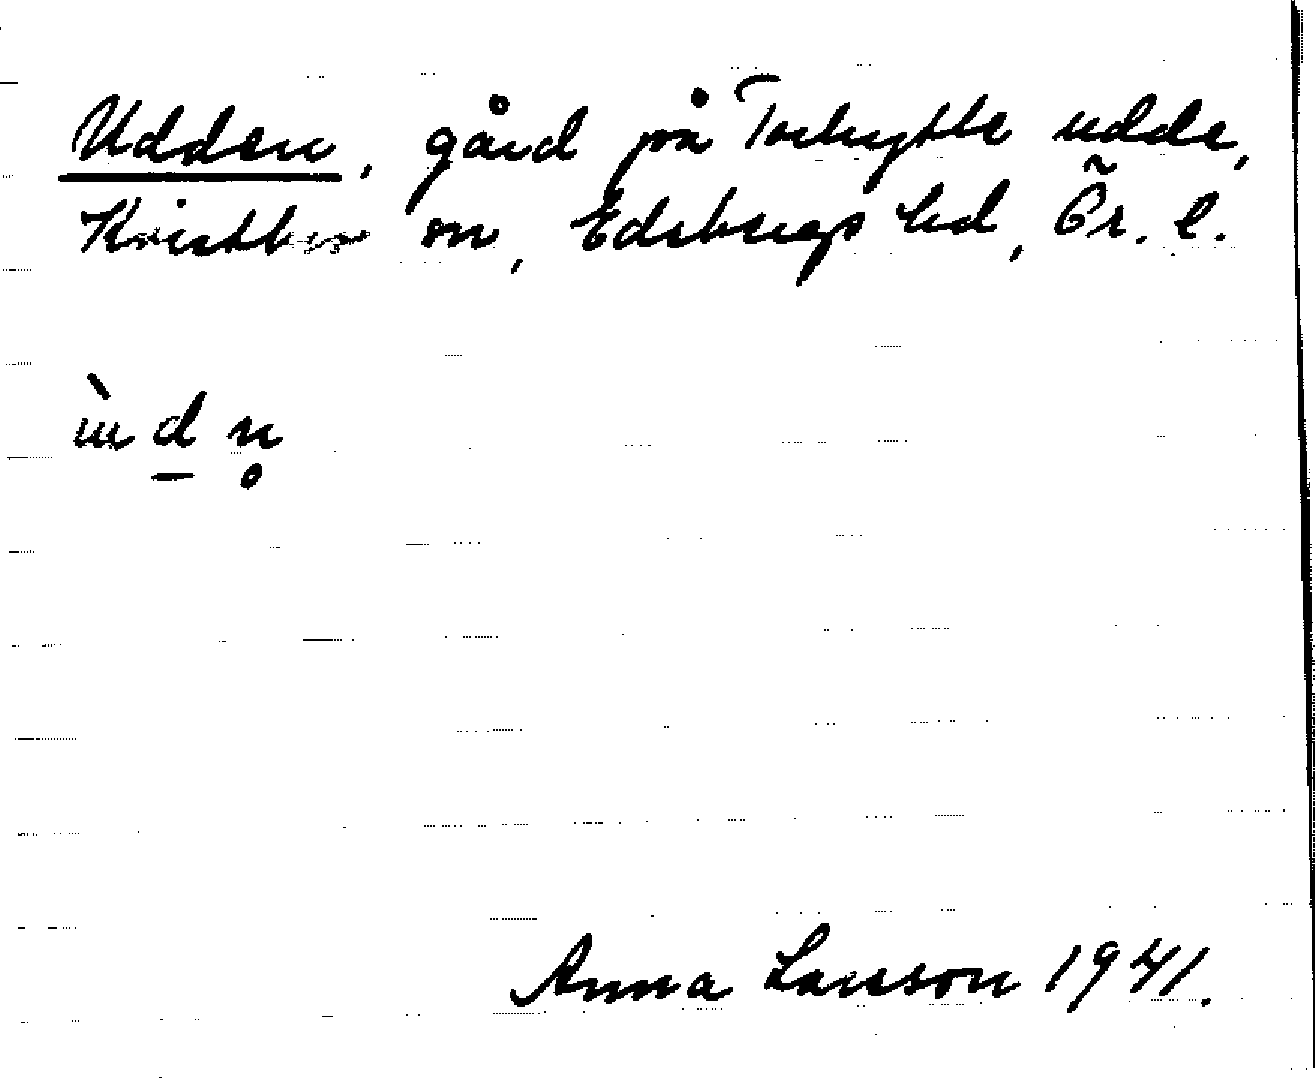 Udden, gård på Torhytte udde,
Kvistbro sn, Edsbergs hd, Ör. l.
ùd̲n̥
Anna Larsson 1941.